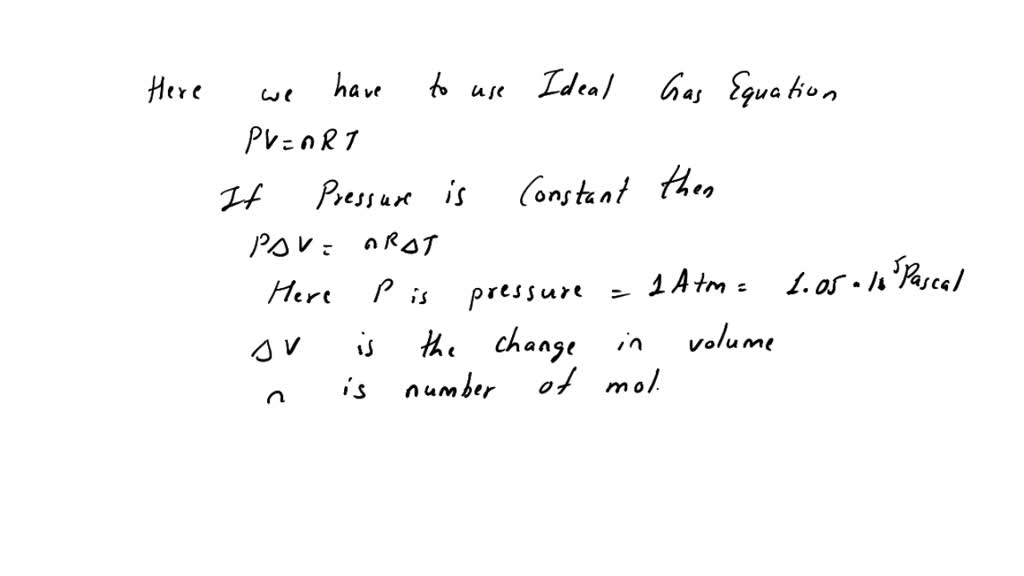 Here we have to use Ideal Gas Equation
PV = nRT
If Pressure is Constant then
PΔV = nRΔT
Here P is pressure = 1 Atm = 1.05 · 10⁵ Pascal
ΔV is the change in volume
n is number of mol.